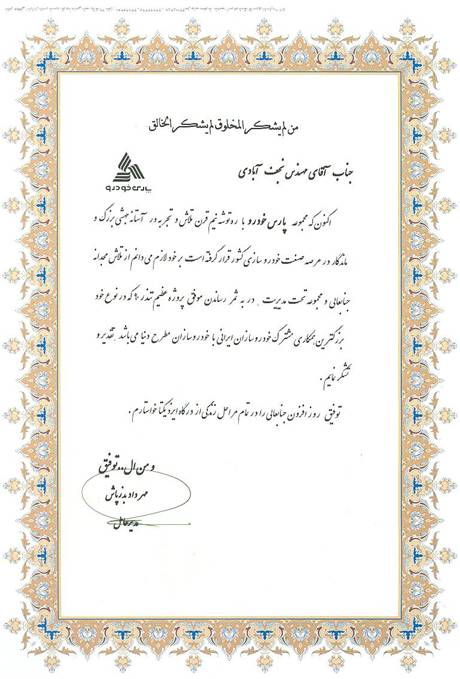 من لم یشکر المخلوق لم یشکر الخالق
جناب آقای مهندس نجف آبادی
پارس خودرو
اکنون که مجموعه پارس خودرو با ره توشه نیم قرن تلاش و تجربه در آستانه جهشی بزرگ و
ماندگار در عرصه صنعت خودروسازی کشور قرار گرفته است بر خود لازم می دانم از تلاش مجدانه
جنابعالی و مجموعه تحت مدیریت ، در به ثمر رساندن موفق پروژه عظیم تندر ۹۰ که در نوع خود
بزرگترین همکاری مشترک خودروسازان ایرانی با خودروسازان مطرح دنیا می باشد تقدیر و
تشکر نمایم .
توفیق روز افزون جنابعالی را در تمام مراحل زندگی از درگاه ایزد یکتا خواستارم .
و من ال... توفیق
مهرداد بذرپاش
مدیرعامل